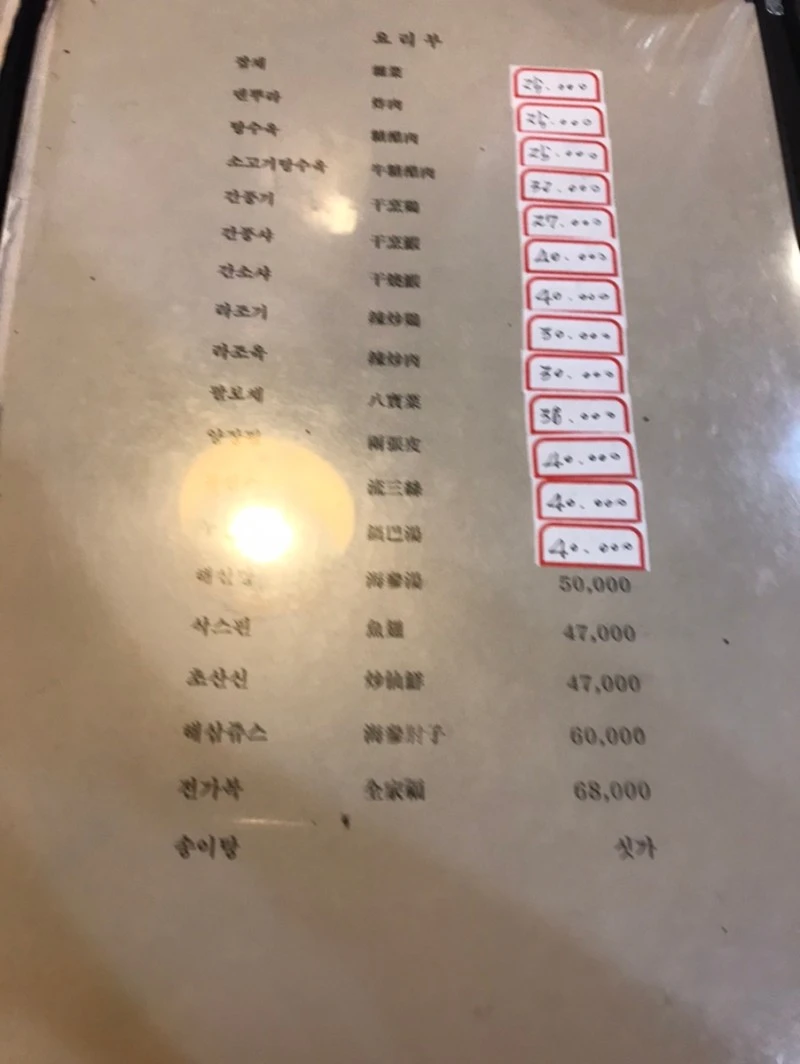 요리부
잡채 雜菜 25.000
덴뿌라 炸肉 25.000
탕수육 糖醋肉 25.000
소고기탕수육 牛糖醋肉 32.000
간풍기 干烹鷄 27.000
간풍샤 干烹鰕 40.000
간소샤 干燒鰕 40.000
라조기 辣炒鷄 30.000
라조육 辣炒肉 30.000
팔보채 八寶菜 38.000
양장피 兩張皮 40.000
流三絲 40.000
鍋巴湯 40.000
해삼탕 海蔘湯 50,000
삭스핀 魚翅 47,000
초산신 炒仙鮮 47,000
해삼쥬스 海蔘肘子 60,000
전가복 全家福 68,000
송이탕 싯가